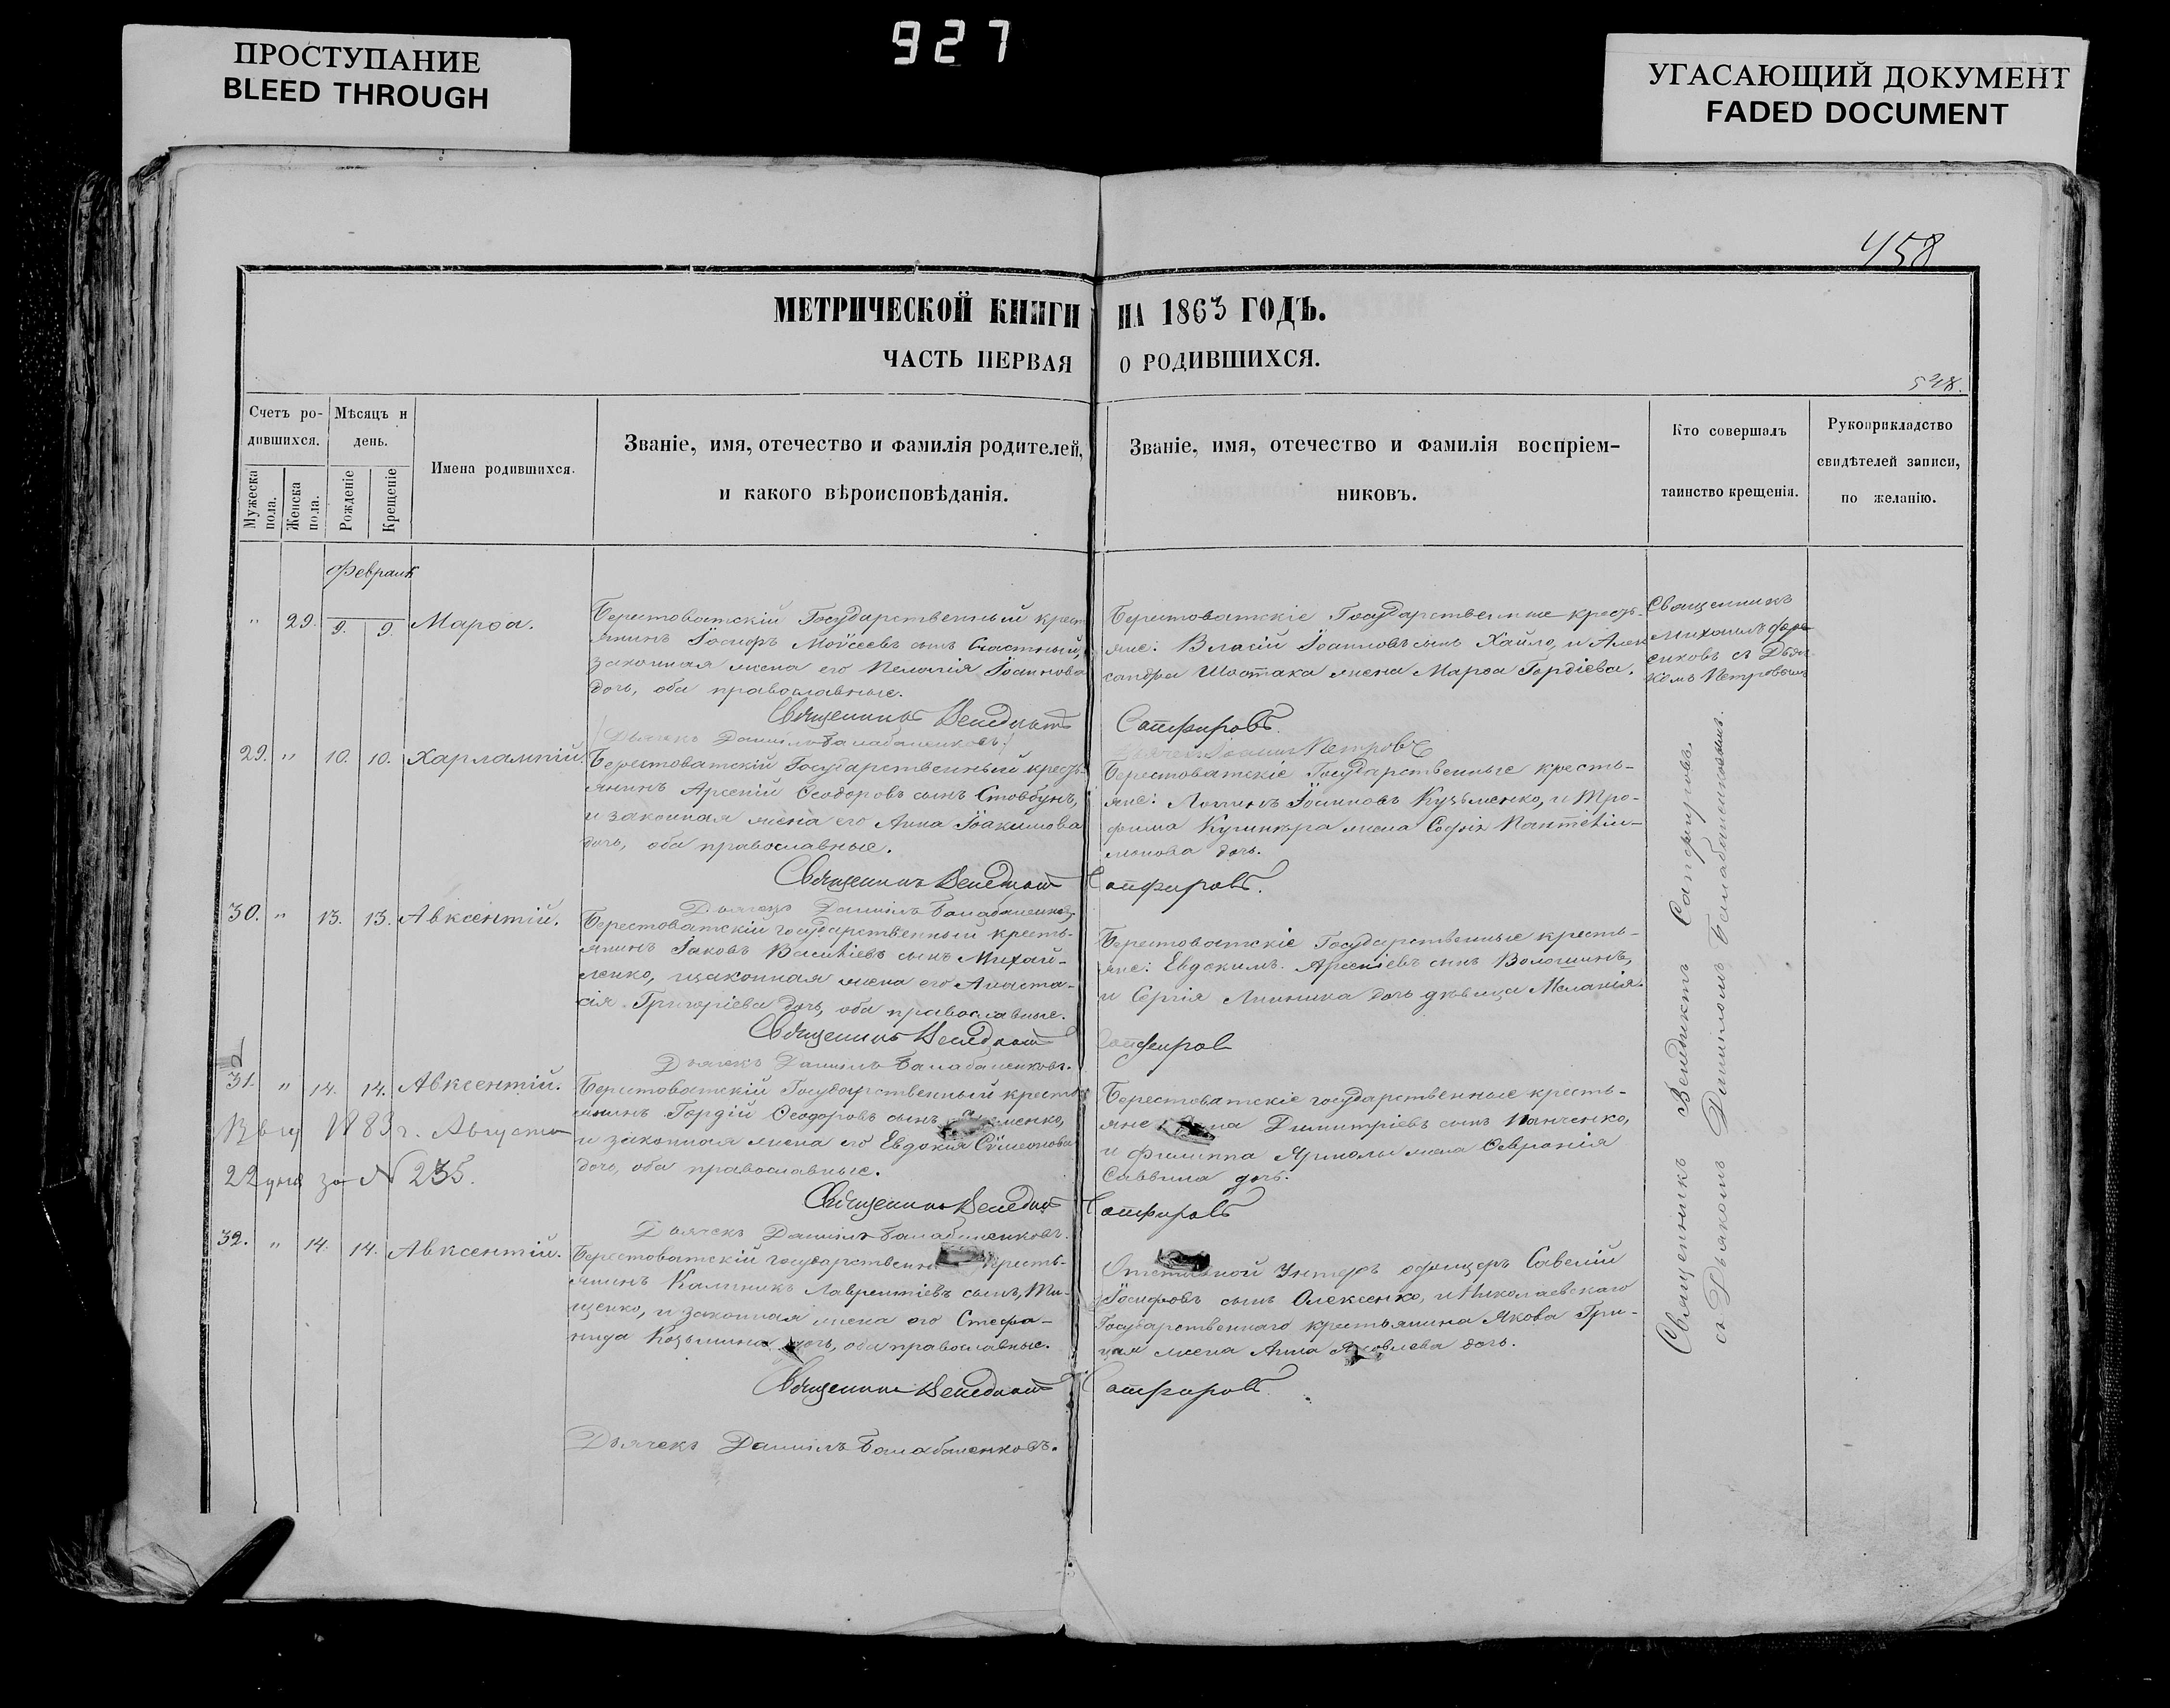 ПРОСТУПАНИЕ
BLEED THROUGH
927
УГАСАЮЩИЙ ДОКУМЕНТ
FADED DOCUMENT
458
МЕТРИЧЕСКОЙ КНИГИ НА 1863 ГОДЪ.
ЧАСТЬ ПЕРВАЯ О РОДИВШИХСЯ.
528.
Счетъ ро-
дившихся.
Мужеска
пола.
Женска
пола.
Мѣсяцъ и
день.
Рожденіе
Крещеніе
Имена родившихся.
Званіе, имя, отечество и фамилія родителей,
и какого вѣроисповѣданія.
Званіе, имя, отечество и фамилія воспріем-
никовъ.
Кто совершалъ
таинство крещенія.
Рукоприкладство
свидѣтелей записи,
по желанію.
Февраля
" 29. 9. 9. Марѳа.
Берестоватскій Государственный крест
янинъ Іосифъ Моѵсеевъ сынъ Счастный,
законная жена его Пелагія Іоаннова
дочь, оба православные.
Священникъ Венедиктъ
Дьячекъ Даніилъ Балабаненковъ.
Берестоватскіе Государственные кресть-
яне: Власій Іоанновъ сынъ Хайло, и Алек
сандра Шостака жена Марѳа Гордіева.
Сапфировъ.
Іоаннъ Петровъ
Священникъ
Михаилъ
съ Дьяч
комъ Петровымъ
29. " 10. 10. Харлампій.
Берестоватскій Государственный кресть-
янинъ Арсеній Ѳеодоровъ сынъ Стовбунъ,
и законная жена его Анна Іоакимова
дочь, оба православные.
Священникъ Венедиктъ
Дьячекъ Даніилъ Балабаненковъ
Берестоватскіе Государственные кресть-
яне: Логинъ Іоанновъ Кузьменко, и Тро-
фима жена Софія Пантелій-
монова дочь.
Сапфировъ.
30. " 13. 13. Авксентій.
Берестоватскій государственный кресть-
янинъ Іаковъ Василіевъ сынъ Михай-
ленко, и законная жена его Анаста-
сія Григоріева дочь, оба православные.
Священникъ Венедиктъ
Дьячекъ Даніилъ Балабаненковъ.
Берестоватскіе Государственные кресть-
яне: Евдокимъ Арсеніевъ сынъ Волошинъ,
и Сергія Линника дочь дѣвица Меланія.
Сапфировъ
31. " 14. 14. Авксентій.
1883 г. Августа
22 дня за N 235.
Берестоватскій Государственный кресть
янинъ Гордій Ѳеодоровъ сынъ менко,
и законная жена его Евдокія Сѵмеонова
дочь, оба православные.
Священникъ Венедиктъ
Дьячекъ Даніилъ Балабаненковъ.
Берестоватскіе государственные кресть-
яне Димитріевъ сынъ Панченко,
и Филиппа Ярмолы жена Евфросинія
Саввина дочь.
Сапфировъ
32. " 14. 14. Авксентій.
Берестоватскій государственны кресть-
янинъ Калиникъ Лаврентіевъ сынъ, Ти-
щенко, и законная жена его Стефа-
нида Козьмина дочь, оба православные.
Священникъ Венедиктъ
Дьячекъ Даніилъ Балабаненковъ.
Отставной Унтеръ офицеръ Савелій
Іосифовъ сынъ Олексенко, и Николаевскаго
Государственнаго крестьянина Якова Гри-
цая жена Анна Яковлева дочь.
Сапфировъ.
Священникъ Венедиктъ Сапфировъ.
съ Дьякомъ Даніиломъ Балабаненковымъ.